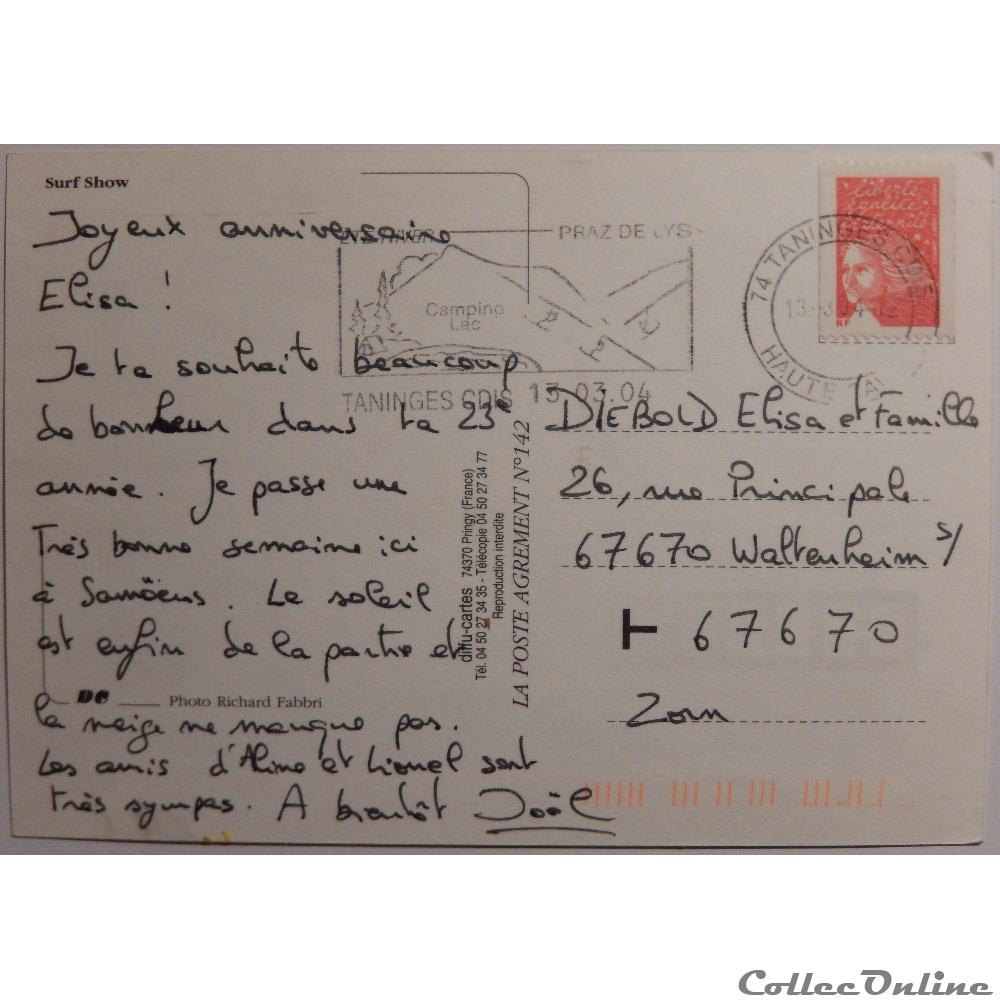 Surf Show
Joyeux anniversaire
Elisa !
Je te souhaite beaucoup
de bonheur dans ta 23e
année. Je passe une
Très bonne semaine ici
à Samöens. Le soleil
est enfin de la partie et
la neige ne manque pas.
Les amis d'Aline et Lionel sont
très sympas. A bientôt Joël
DC Photo Richard Fabbri
PRAZ DE LYS
Camping
Lac
TANINGES CDIS 13.03.04
diffu-cartes 74370 Pringy (France)
Tél. 04 50 27 34 35 - Télécopie 04 50 27 34 77
Reproduction interdite
LA POSTE AGREMENT N°142
liberté
égalité
fraternité
RF
74 TANINGES CDIS
HAUTE
DIEBOLD Elisa et Famille
26, rue Principale
67670 Waltenheim s/
67670
Zorn
CollecOnline